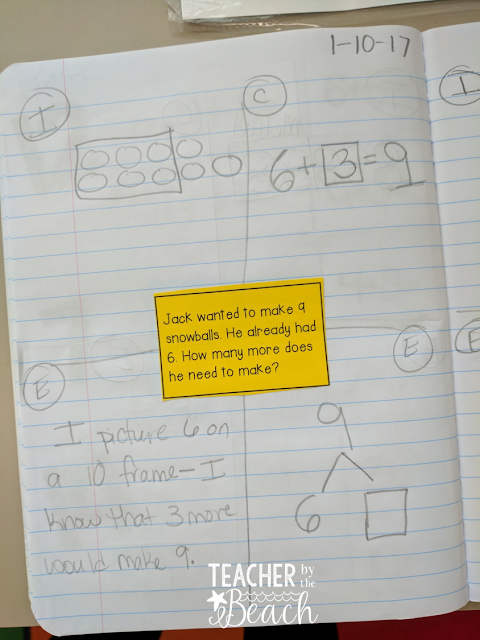 1-10-17
I
C
I
6+3=9
Jack wanted to make 9
snowballs. He already had
6. How many more does
he need to make?
E
E
E
I picture 6 on
a 10 frame-I
know that 3 more
would make 9.
9
6
TEACHER by the
Beach